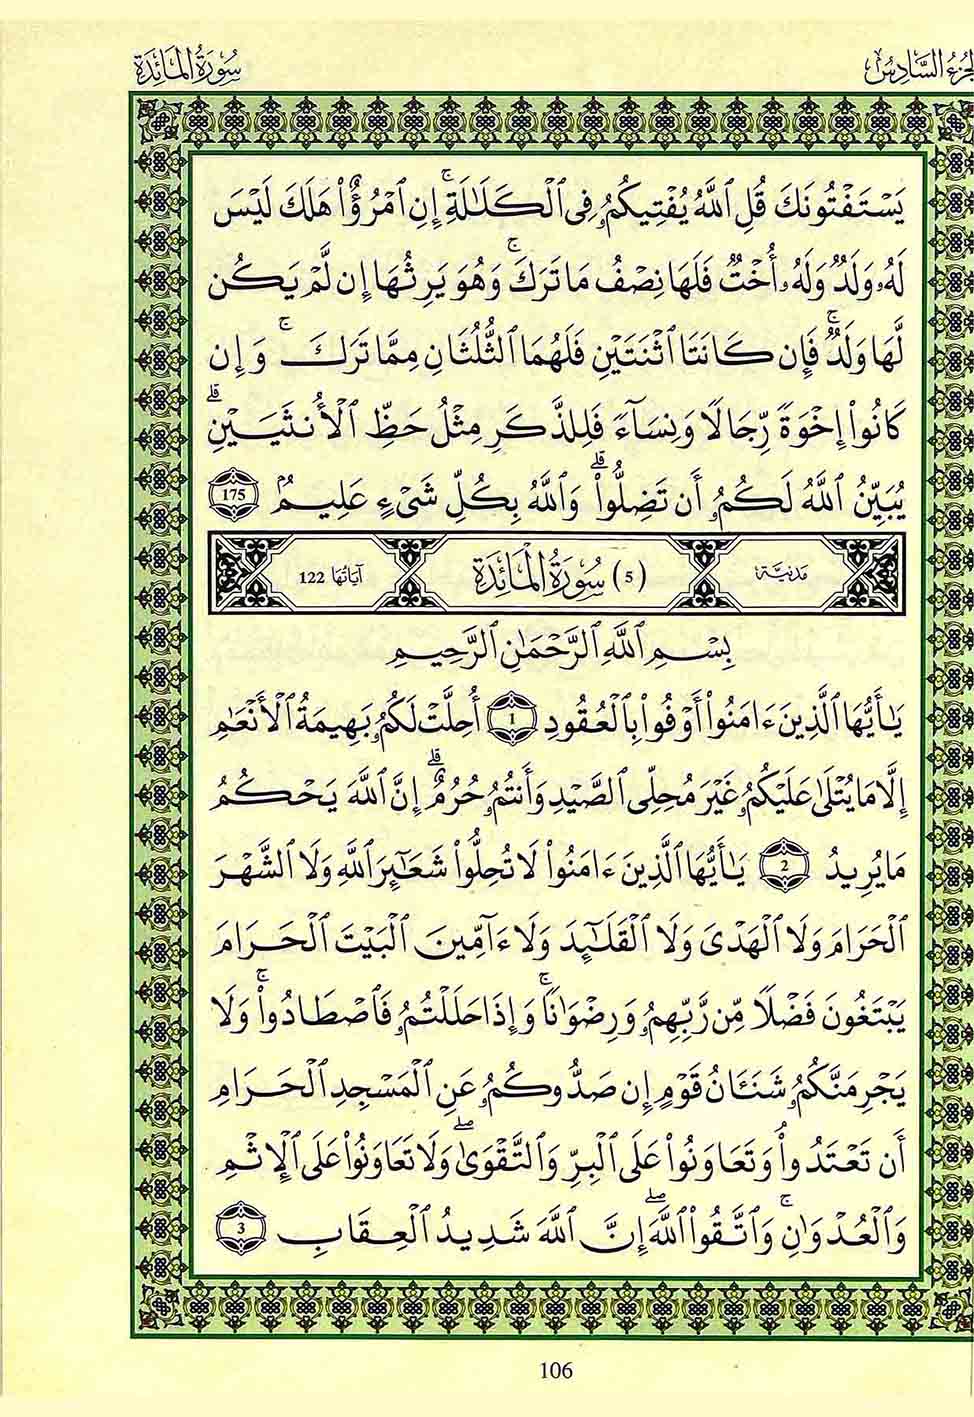 الجزء السادس
سورة المائدة
يَسْتَفْتُونَكَ قُلِ ٱللَّهُ يُفْتِيكُمُۥ فِى ٱلْكَلَٰلَةِ ۚ إِنِ ٱمْرُؤٌا۟ هَلَكَ لَيْسَ
لَهُۥ وَلَدٌ وَلَهُۥ أُخْتٌ فَلَهَا نِصْفُ مَا تَرَكَ ۚ وَهُوَ يَرِثُهَا إِن لَّمْ يَكُن
لَّهَا وَلَدٌ ۚ فَإِن كَانَتَا ٱثْنَتَيْنِ فَلَهُمَا ٱلثُّلُثَانِ مِمَّا تَرَكَ ۚ وَإِن
كَانُوا۟ إِخْوَةً رِّجَالًا وَنِسَآءً فَلِلذَّكَرِ مِثْلُ حَظِّ ٱلْأُنثَيَيْنِ ۗ
يُبَيِّنُ ٱللَّهُ لَكُمُۥ أَن تَضِلُّوا۟ ۗ وَٱللَّهُ بِكُلِّ شَىْءٍ عَلِيمٌۢ 175
مدنية (5) سُورَةُ المَائِدَةِ آيَاتُهَا 122
بِسْمِ ٱللَّهِ ٱلرَّحْمَٰنِ ٱلرَّحِيمِ
يَٰأَيُّهَا ٱلَّذِينَ ءَامَنُوا۟ أَوْفُوا۟ بِٱلْعُقُودِ 1 أُحِلَّتْ لَكُمُۥ بَهِيمَةُ ٱلْأَنْعَٰمِ
إِلَّا مَا يُتْلَىٰ عَلَيْكُمُۥ غَيْرَ مُحِلِّى ٱلصَّيْدِ وَأَنتُمُۥ حُرُمٌ ۗ إِنَّ ٱللَّهَ يَحْكُمُ
مَا يُرِيدُ 2 يَٰأَيُّهَا ٱلَّذِينَ ءَامَنُوا۟ لَا تُحِلُّوا۟ شَعَٰٓئِرَ ٱللَّهِ وَلَا ٱلشَّهْرَ
ٱلْحَرَامَ وَلَا ٱلْهَدْىَ وَلَا ٱلْقَلَٰٓئِدَ وَلَا ءَآمِّينَ ٱلْبَيْتَ ٱلْحَرَامَ
يَبْتَغُونَ فَضْلًا مِّن رَّبِّهِمُۥ وَرِضْوَٰنًا ۚ وَإِذَا حَلَلْتُمُۥ فَٱصْطَادُوا۟ ۚ وَلَا
يَجْرِمَنَّكُمُۥ شَنَـَٔانُ قَوْمٍ إِن صَدُّوكُمُۥ عَنِ ٱلْمَسْجِدِ ٱلْحَرَامِ
أَن تَعْتَدُوا۟ وَتَعَاوَنُوا۟ عَلَى ٱلْبِرِّ وَٱلتَّقْوَىٰ ۖ وَلَا تَعَاوَنُوا۟ عَلَى ٱلْإِثْمِ
وَٱلْعُدْوَٰنِ ۚ وَٱتَّقُوا۟ ٱللَّهَ ۖ إِنَّ ٱللَّهَ شَدِيدُ ٱلْعِقَابِ 3
106